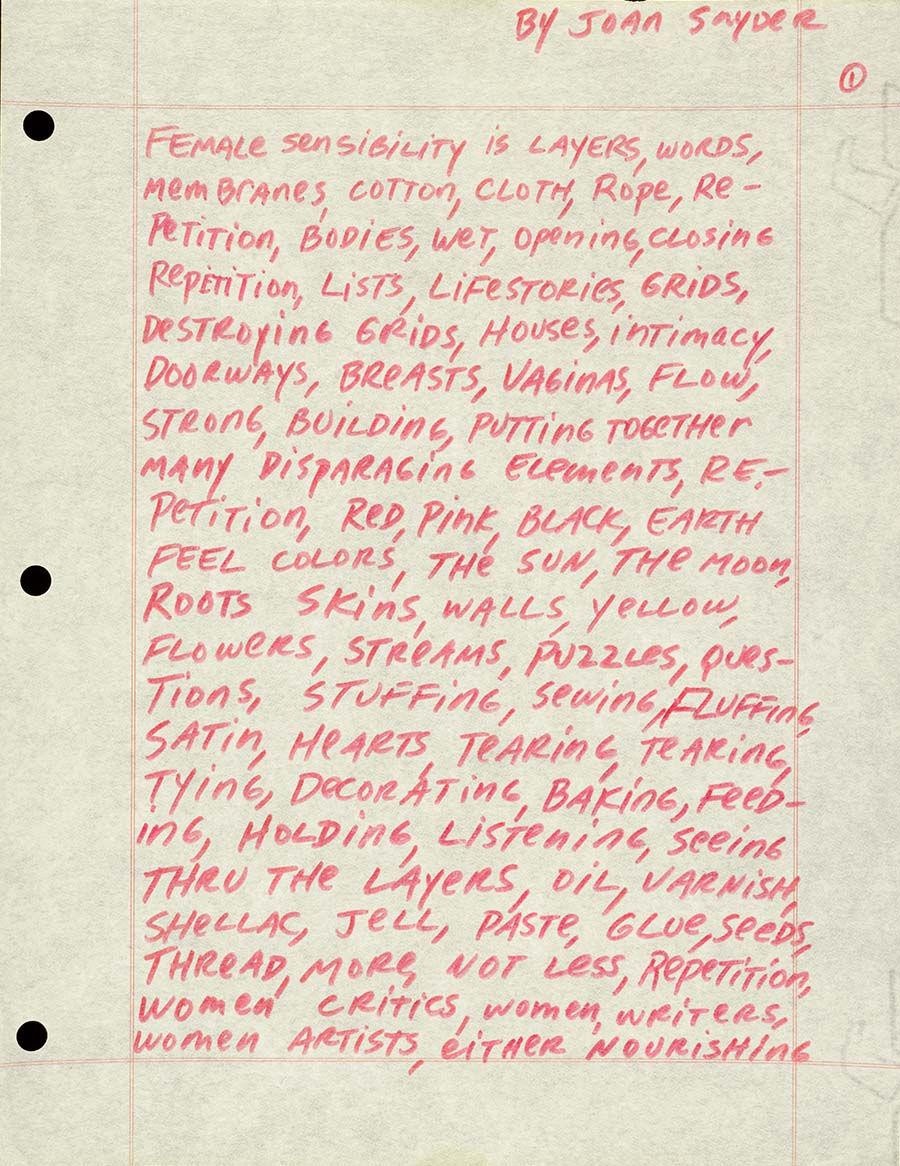 BY JOAN SNYDER
1
FEMALE SENSIBILITY IS LAYERS, WORDS,
MEMBRANES, COTTON, CLOTH, ROPE, RE-
PETITION, BODIES, WET, OPENING, CLOSING
REPETITION, LISTS, LIFESTORIES, GRIDS,
DESTROYING GRIDS, HOUSES, INTIMACY,
DOORWAYS, BREASTS, VAGINAS, FLOW,
STRONG, BUILDING, PUTTING TOGETHER
MANY DISPARAGING ELEMENTS, RE-
PETITION, RED, PINK, BLACK, EARTH
FEEL COLORS, THE SUN, THE MOON,
ROOTS SKINS, WALLS, YELLOW,
FLOWERS, STREAMS, PUZZLES, QUES-
TIONS, STUFFING, SEWING, FLUFFING,
SATIN, HEARTS, TEARING, TEARING,
TYING, DECORATING, BAKING, FEED-
ING, HOLDING, LISTENING, SEEING
THRU THE LAYERS, OIL, VARNISH,
SHELLAC, JELL, PASTE, GLUE, SEEDS,
THREAD, MORE, NOT LESS, REPETITION,
WOMEN CRITICS, WOMEN, WRITERS,
WOMEN ARTISTS, EITHER NOURISHING